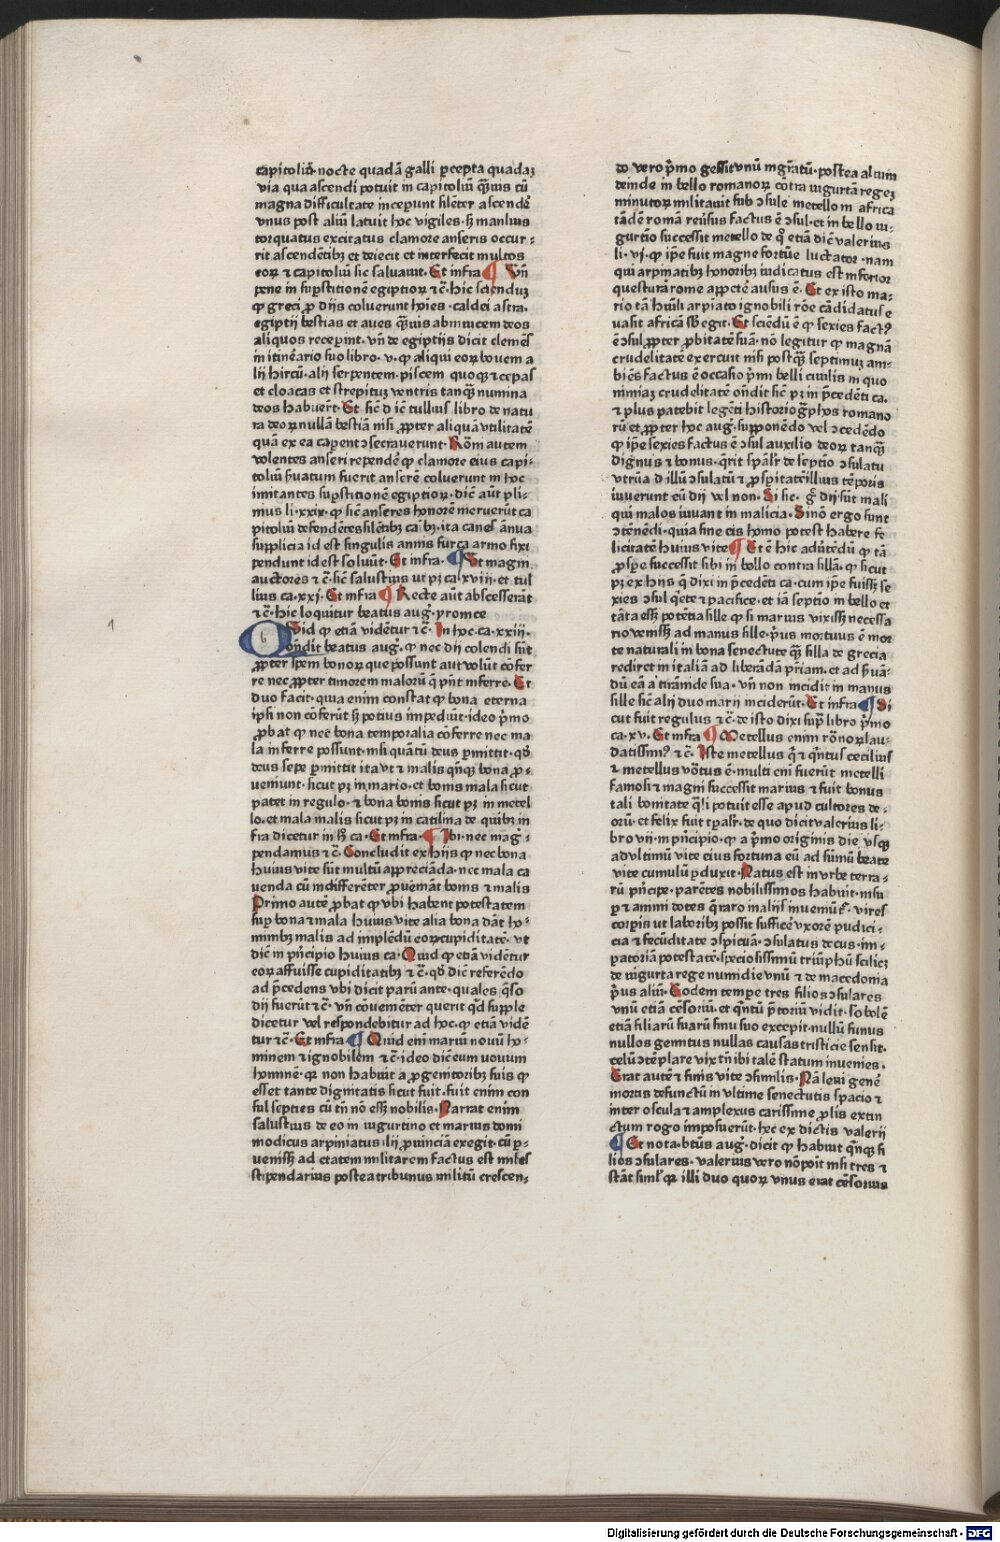 capitoliū·nocte quadā galli p̱cepta quadaꝫ
via qua ascendi potuit in capitoliū q̄̄uis cū
magna difficultate incepunt silēter ascendē
vnus post aliū latuit hoc vigiles·sꝫ manlius
torquatus excitatus clamore anseris occur⸗
rit ascendētibꝫ et deiecit et interfecit multos
eoꝝ ⁊ capitoliū sic saluauit·Et infra ¶ Vn̄
pene in sup̱stitionē egiptioꝝ ⁊ c̄·hic sciendū
ꝙ greci ꝓ dijs coluerunt hoīes·caldei astra·
egiptij bestias et aues q̄̄uis ab initio eos deos
aliquos recep̱int·vn̄ de egiptijs dicit clemēs
in itinēario suo libro·v·ꝙ aliqui eoꝝ bouem a
lij hircū·alij serpentem·piscem quoqꝫ ⁊ cepas
et cloacas et strepitus ventris tanqꝫ numina
deos habuerūt·Et sic̄ dicit tullius libro de natu
ra deoꝝ nullā bestiā nisi ꝓpter aliquā vtilitatē
quā ex ea cap̱ent ꝯsecrauerunt·Rōm autem
volentes anseri rependē ꝙ clamore eius capi⸗
toliū p̄uatum fuerit anserē coluerunt in hoc
imitantes sup̱stitionē egiptioꝝ·dic̄ aūt pli⸗
nius li·xxix·ꝙ sic̄ anseres honorē meruerūt ca
pitoliū defendētes silētibꝫ ca bꝫ·ita canes ānua
supplicia id est singulis annis furca armo fixi
pendunt id est soluūt·Et infra·¶ Et magni
auctores ⁊ c̄·sic̄ salustius ut pꝫ ca·xviij·et tul
lius ca·xxj·Et infra ¶ Recte aūt abscesserāt
⁊ c̄·hic loquitur beatus aug̕·yronice
Quid ꝙ etiā videntur ⁊ c̄·In hoc·ca·xxiij·
ondit beatus aug̕·ꝙ nec dij colendi sūt
ꝓpter spem bonoꝝ que possunt aut volūt cōfer
re nec ꝓpter timorem maloꝝ q̄ pn̄t inferre·Et
duo facit·quia enim constat ꝙ bona eterna
ipsi non cōferūt sꝫ potius impediūt·ideo p̄mo
ꝓbat ꝙ nec bona temporalia cōferre nec ma
la inferre possunt·nisi quātū deus p̱mittit·qd̕
deus sepe p̱mittit ita vt ⁊ malis qn̄qꝫ bona ꝓ⸗
ueniunt·sicut pꝫ in mario·et bonis mala sicut
patet in regulo·⁊ bona bonis sicut pꝫ in metel
lo·et mala malis sicut pꝫ in catilina de quibꝫ in
fra dicetur in h̕ ca·Et infra·¶ Ibi·nec mag̕⸗
pendamus ⁊ c̄·Concludit ex hijs ꝙ nec bona
huius vite sūt multū appreciāda·nec mala ca
uenda cū indifferēter ꝓueniāt bonis ⁊ malis
Primo autē ꝓbat ꝙ vbi habent potestatem
sup̱ bona ⁊ mala huius vite alia bona dāt ho⸗
minibꝫ malis ad implēdū eoꝝ cupiditatē·vt
dic̄ in p̄ncipio huius ca·Quid ꝙ etiā vidētur
eoꝝ affuisse cupiditatibꝫ ⁊ c̄·qd̕ dic̄ referēdo
ad p̄cedens vbi dicit parū ante·quales q̄so
dij fuerūt ⁊ c̄·vn̄ cōuenieñter querit qd̕ supple
dicetur vel respondebitur ad hoc·ꝙ etiā vidē
tur ⁊ c̄·Et infra ¶ Quid eni mariū nouū ho⸗
minem ⁊ ignobilem ⁊ c̄·ideo dic̄ eum nouum
hominē·qr̄ non habuit a ꝓgenitoribꝫ suis ꝙ
esset tante dignitatis sicut fuit·fuit enim con
sul septies cū tn̄ nō essꝫ nobilis·Narrat enim
salustius de eo in iugurtino et marius domi
modicus arpinatus·lij ꝓuincia exegit·cū p̱⸗
uenissꝫ ad etatem militarem factus est miles
stipendarius postea tribunus militū crescen⸗
do vero p̄mo gessit vnū mgr̄atū·postea alium
deinde in bello romanoꝝ cōtra iugurtā regeꝫ
minutoꝝ militauit sub ꝯsule metello in africa
tādē romā reūsus factus ē ꝯsul·et in bello iu⸗
gurtio successit metello de q̊ etiā dic̄ valerius
li·vj·ꝙ ip̄e fuit magne fortūe luctator·nam
qui arpinatibꝫ honoribꝫ iudicatus est inferior
questurā rome appetē ausus ē·Et ex isto ma⸗
rio tā hūili arpiato ignobili rōe cādidatus e
uasit africā sb̕egit·Et sciēdū ē ꝙ sexies fact9
ē ꝯsul ꝓpter ꝓbitatē suā·nō legitur ꝙ magnā
crudelitatē exercuit nisi postqꝫ septimuꝫ am⸗
biēs factus ē occasio p̄mi belli ciuilis in quo
nimiaꝫ crudelitatē ondit sic̄ pꝫ in p̄cedēti ca·
⁊ plus patebit legēti historiog̕phos romano
rū et ꝓpter hoc aug̕·supponēdo vel ꝯcedēdo
ꝙ ip̄e sexies factus ē ꝯsul auxilio deoꝝ tanqꝫ
dignus ⁊ bonus·q̄rit sp̄al̕r de septīo ꝯsulatu
vtrū a d illū ꝯsulatū ⁊ ꝓspitatē illius tēporis
iuuerunt eū dij vel non·Si sic·g̊ dij sūt mali
qui malos iuuant in malicia·Si nō ergo sunt
ꝯtēnēdi·quia sine eis homo potest habere fe
licitatē huius vite ¶ Et ē hic aduētēdū ꝙ tā
ꝓspe successit sibi in bello contra sillā·ꝙ sicut
pꝫ ex hijs q̄ dixi in p̄cedēti ca·cum ip̄e fuissꝫ se
xies ꝯsul q̄ete ⁊ pacifice·et iā septīo in bello et
tāta essꝫ potētia sille ꝙ si marius vixissꝫ necessa
rio venissꝫ ad manus sille·p̄us mortuus ē mor
te naturali in bona senectute qꝫ silla de grecia
rediret in italiā ad liberādā p̄riam·et ad p̄uā⸗
dū eā a tirānide sua·vn̄ non incidit in manus
sille sic̄ alij duo marij inciderūt·Et infra ¶ Si
cut fuit regulus ⁊ c̄·de isto dixi sup̱ libro p̄mo
ca·xv·Et infra ¶ Metellus enim rōnoꝝ lau⸗
datissim9 ⁊ c̄·Iste metellus q̄ ⁊ q̄ntus cecilius
⁊ metellus vōtus ē·multi eni fuerūt metelli
famosi ⁊ magni successit marius ⁊ fuit bonus
tali bonitate q̄li potuit esse apud cultores de⸗
orū·et felix fuit tp̱al̕r·de quo dicit valerius li⸗
bro vij·in p̄ncipio·ꝙ a p̄mo originis die vsqꝫ
ad vltimū vite eius fortuna eū ad sūmū beate
vite cumulū p̱duxit·Natus est in vrbe terra⸗
rū p̄ncipe·parētes nobilissimos habuit·insu
p̱ ⁊ animi dotes q̄ raro in alijs inueniūt̕·vires
corp̱is ut laboribꝫ possit sufficē vxorē pudici⸗
cia ⁊ fecūditate ꝯspicuā·ꝯsulatus decus·im⸗
patoriā potestatē·speciosissimū triūphū scilicꝫ
de iugurta rege numidie vnū ⁊ de macedonia
p̄us aliū·Eodem tempe tres filios ꝯsulares
vnū etiā cēsoriū·et q̄ntū p̄toriū vidit·sobolē
etiā filiarū suarū sinu suo excepit·nullū funus
nullos gemitus nullas causas tristicie sensit·
celū ꝯtēplare vix tn̄ ibi talē statum inuenies·
Erat autē ⁊ finis vite ꝯsimilis·Nā leni genē
mortis defunctū in vltime senectutis spacio ⁊
inter oscula ⁊ amplexus carissime ꝓlis extin
ctum rogo imposuerūt·hec ex dictis valerij
¶ Et nota·btūs aug̕·dicit ꝙ habuit q̄nqꝫ fi
lios ꝯsulares·valerius vero nō poīt nisi tres ⁊
stāt siml̕ qr̄ illi duo quoꝝ vnus erat cēsorius
Digitalisierung gefördert durch die Deutsche Forschungsgemeinschaft - DFG